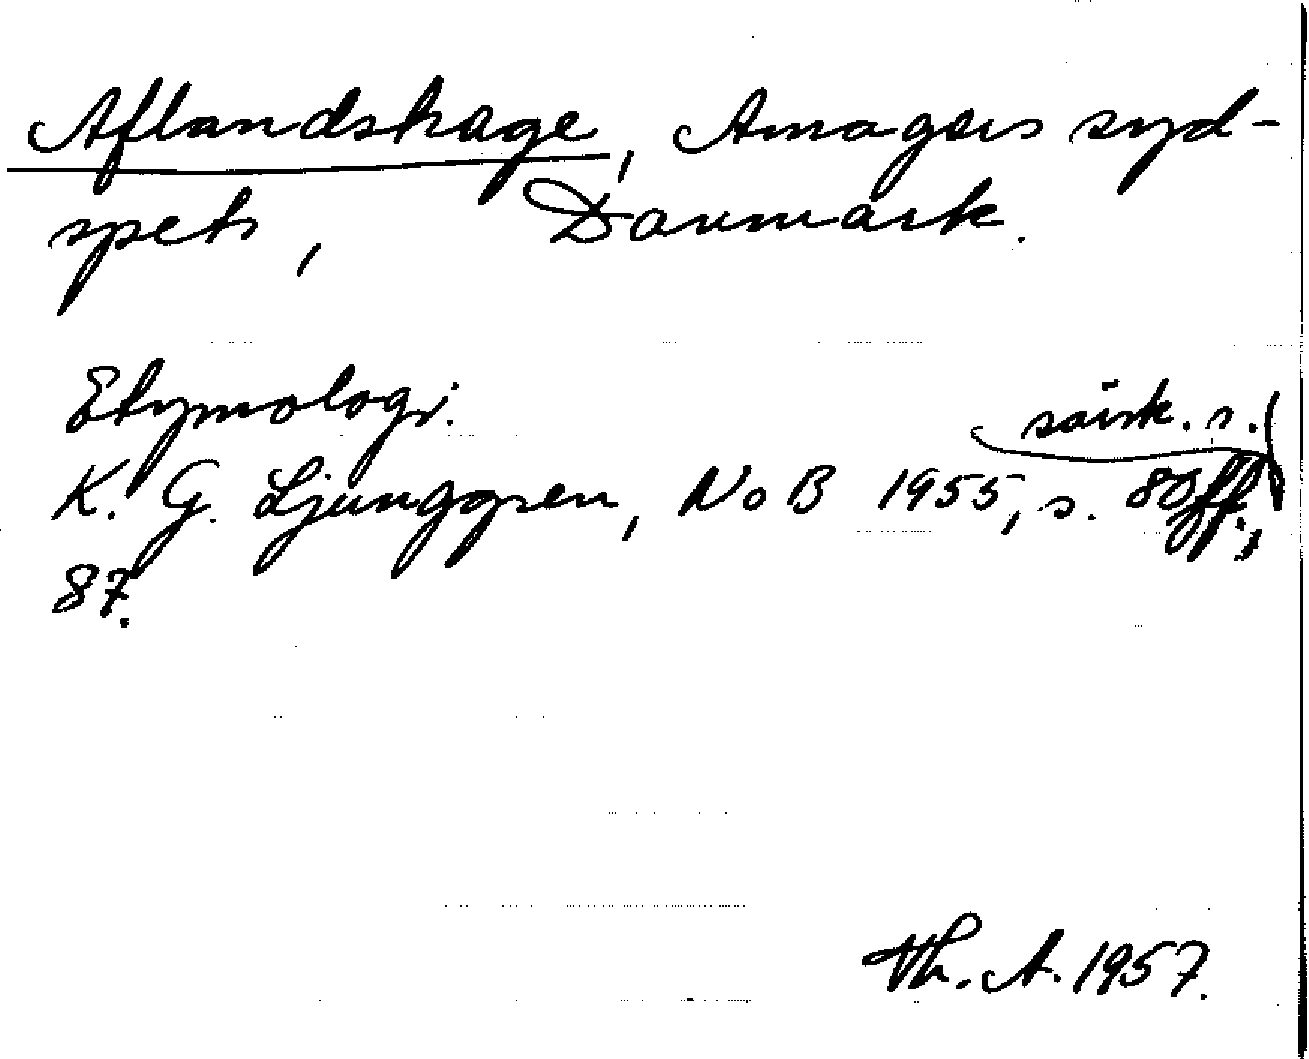 Aflandshage, Amagers syd-
spets, Danmark.
Etymologi.
K. G. Ljunggren, NoB 1955, s. 80ff., särsk. s.
87.
Th. A. 1957.